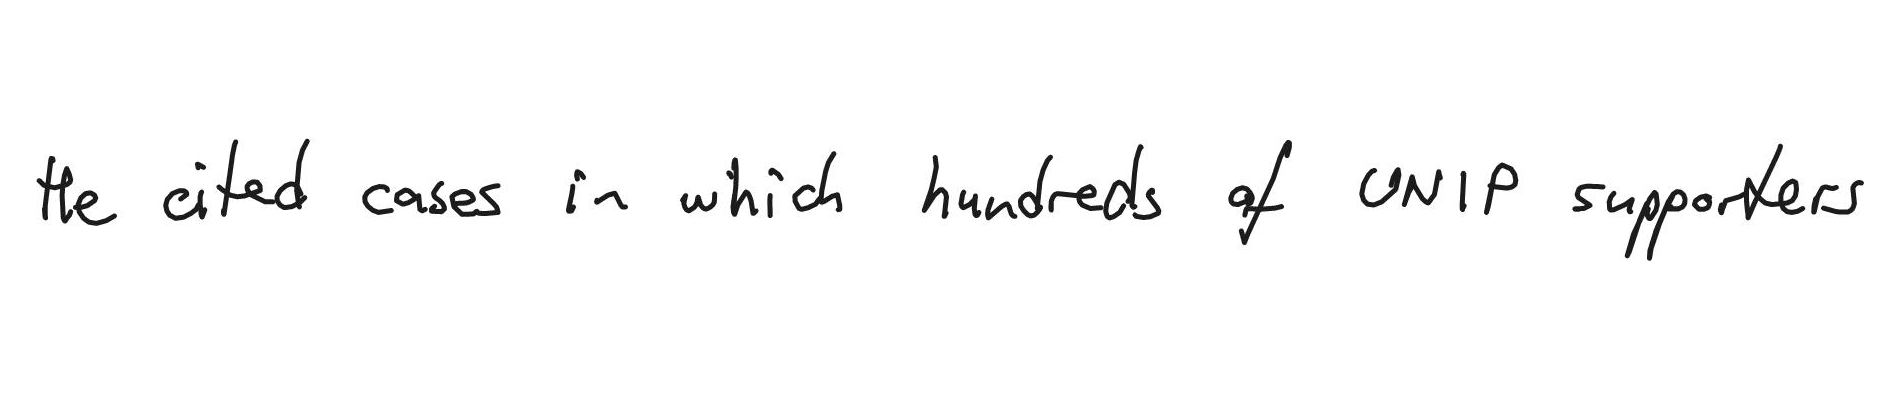 He cited cases in which hundreds of UNIP supporters